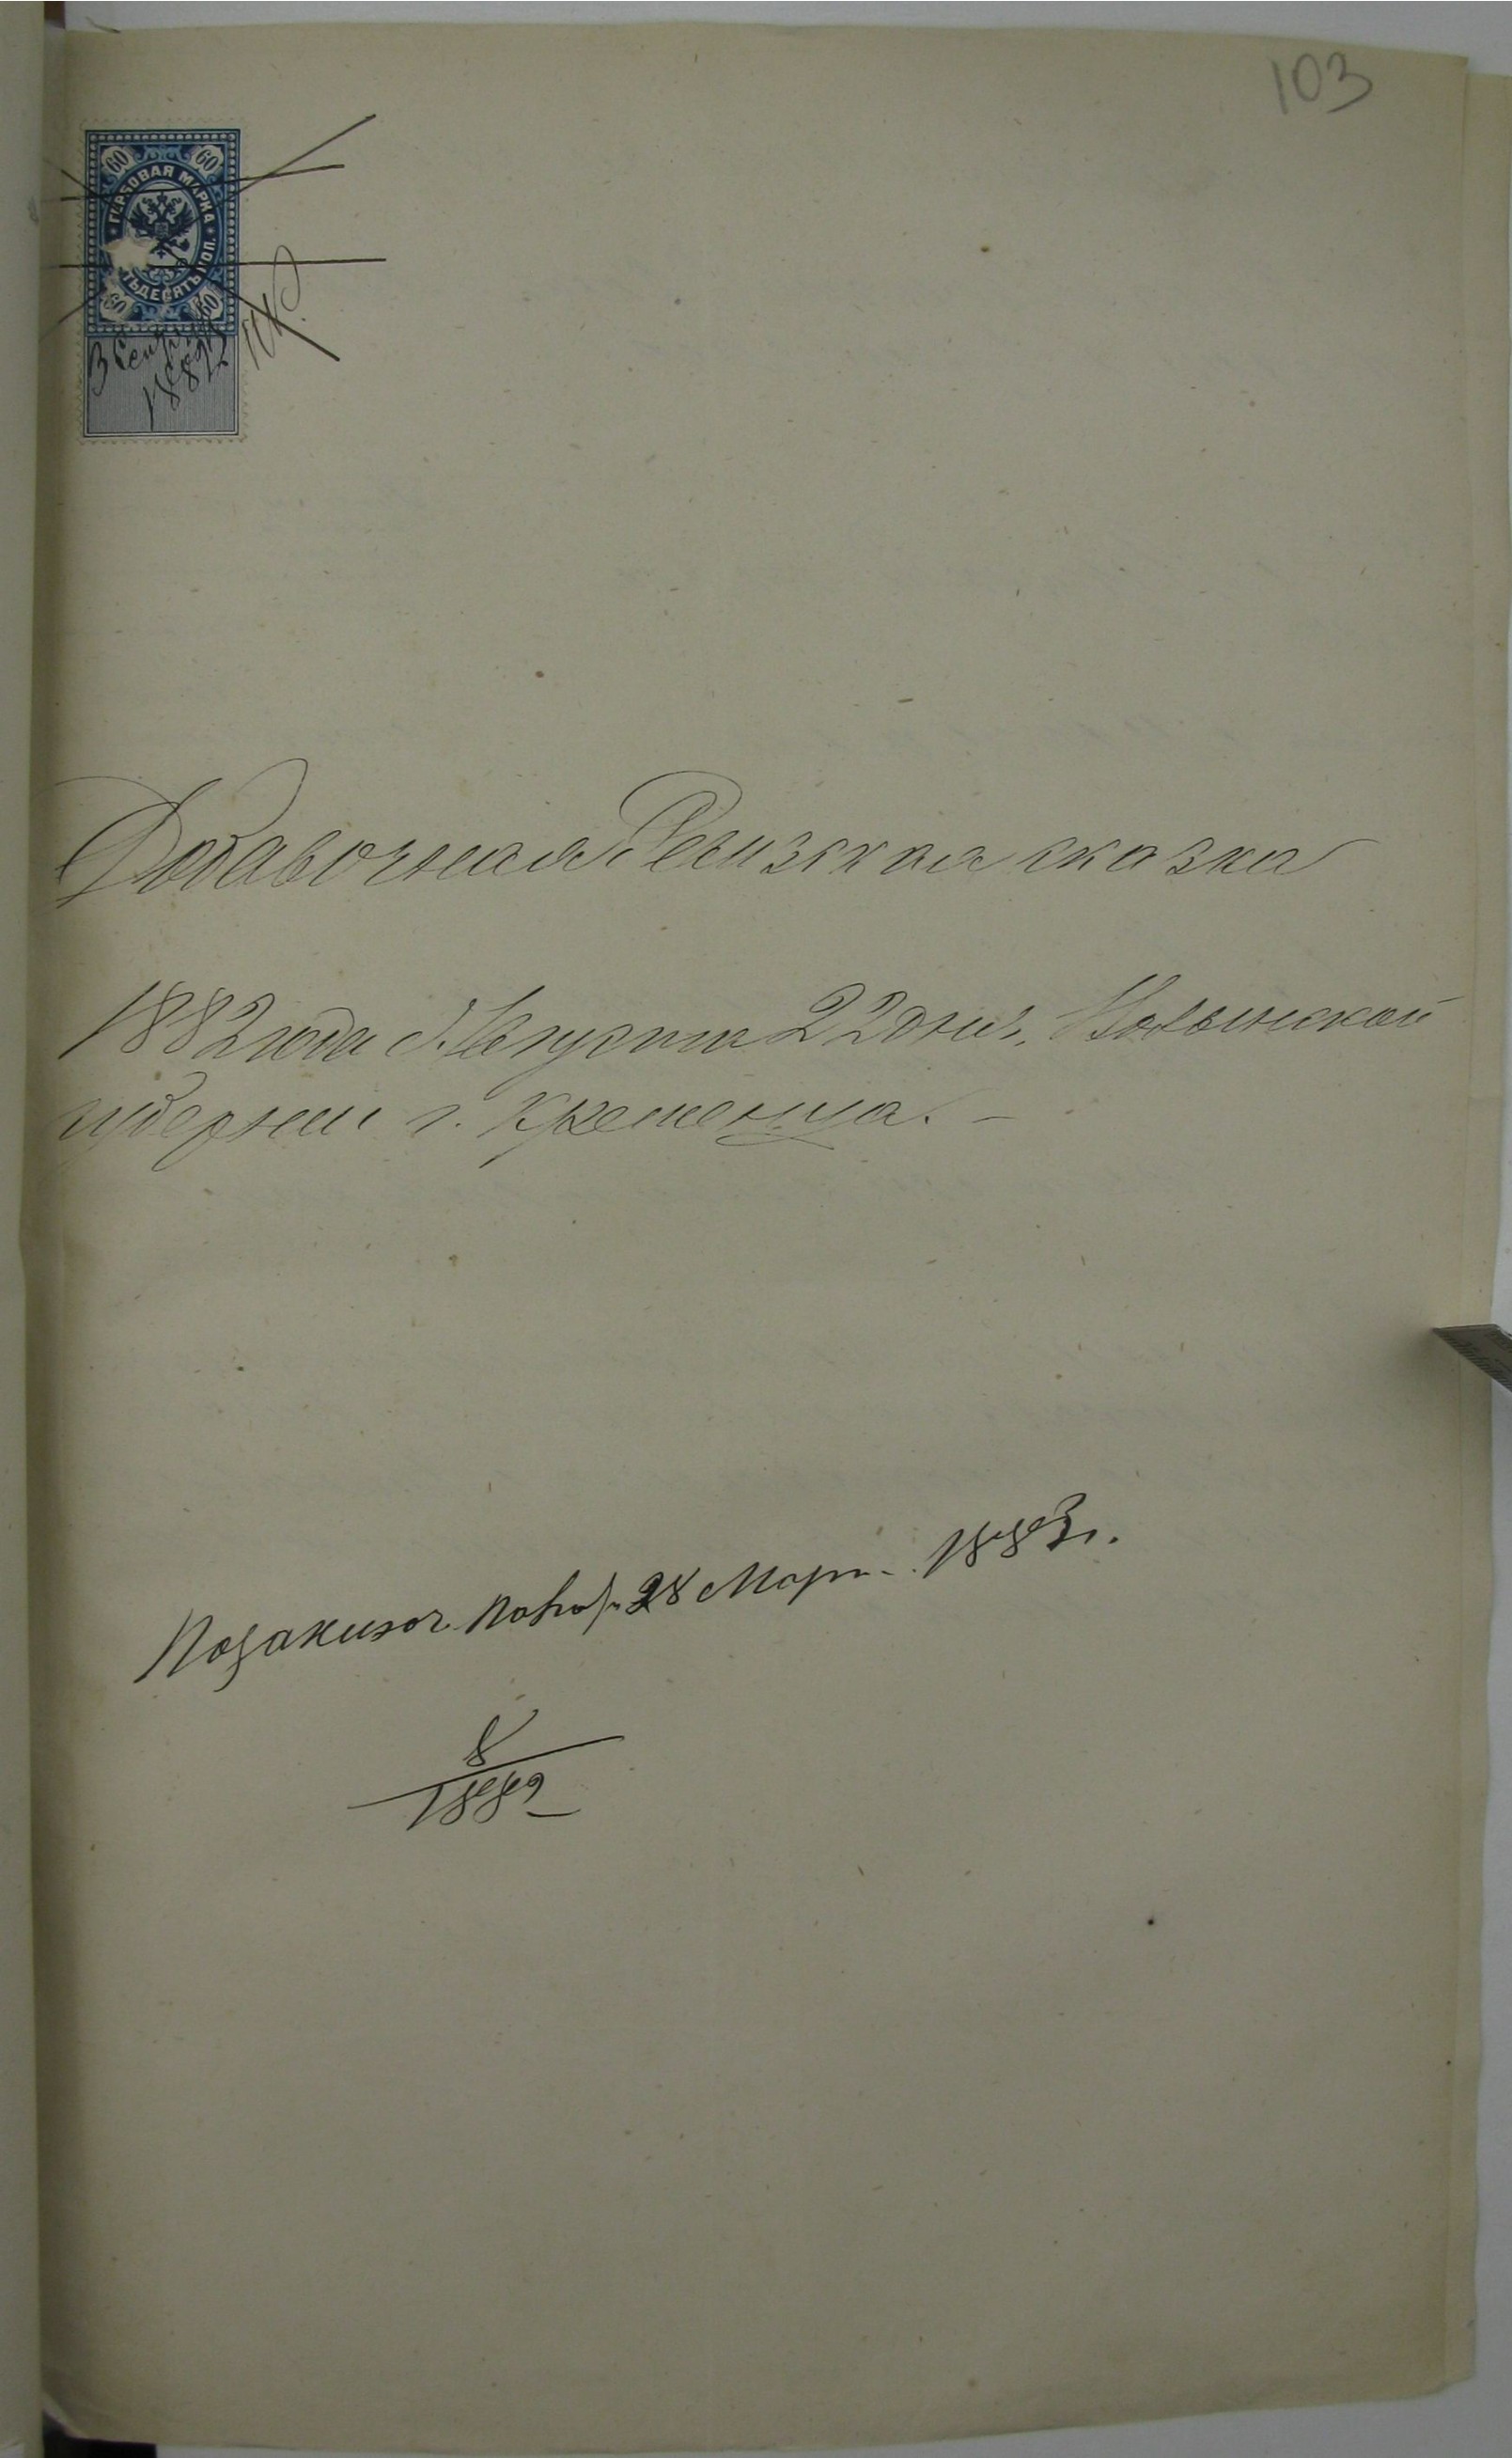 103
60 60
ГЕРБОВАЯ МАРКА
ТЬДЕСЯТЪ КОП.
60 60
3 Сентября
1882
Добавочная Ревизская сказка
1882 года Августа 22 дня, Волынской
губерніи г. Кременца. –
28 Март. 1883 г.
8
1882